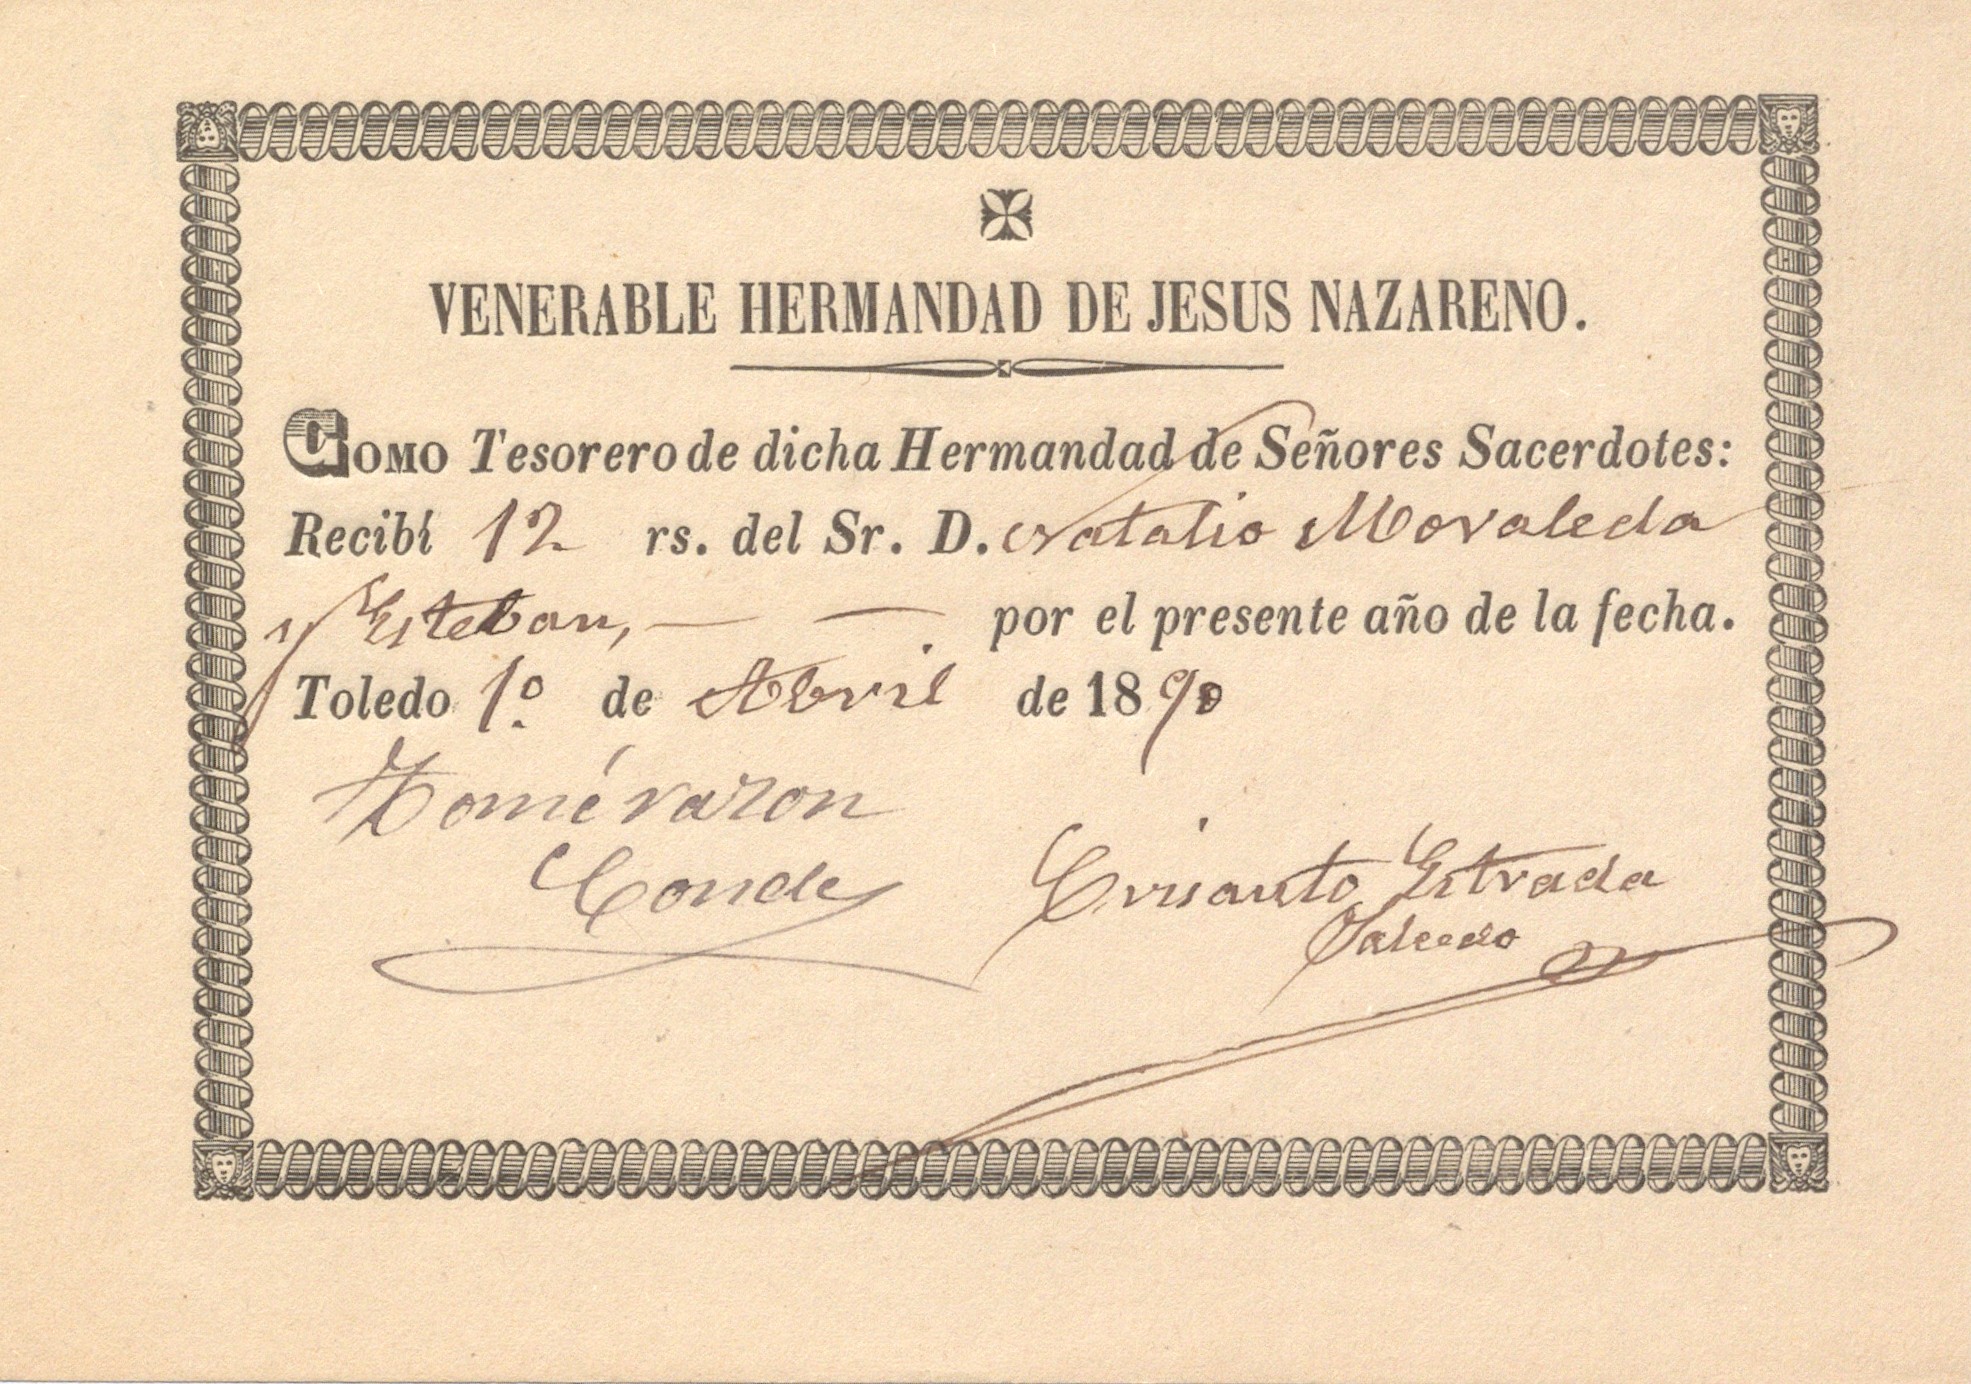 VENERABLE HERMANDAD DE JESUS NAZARENO.
COMO Tesorero de dicha Hermandad de Señores Sacerdotes:
Recibí 12 rs. del Sr. D. Natalio Moraleda
y Esteban, — — por el presente año de la fecha.
Toledo 1º de Abril de 1890
Conde
Crisanto Estrada